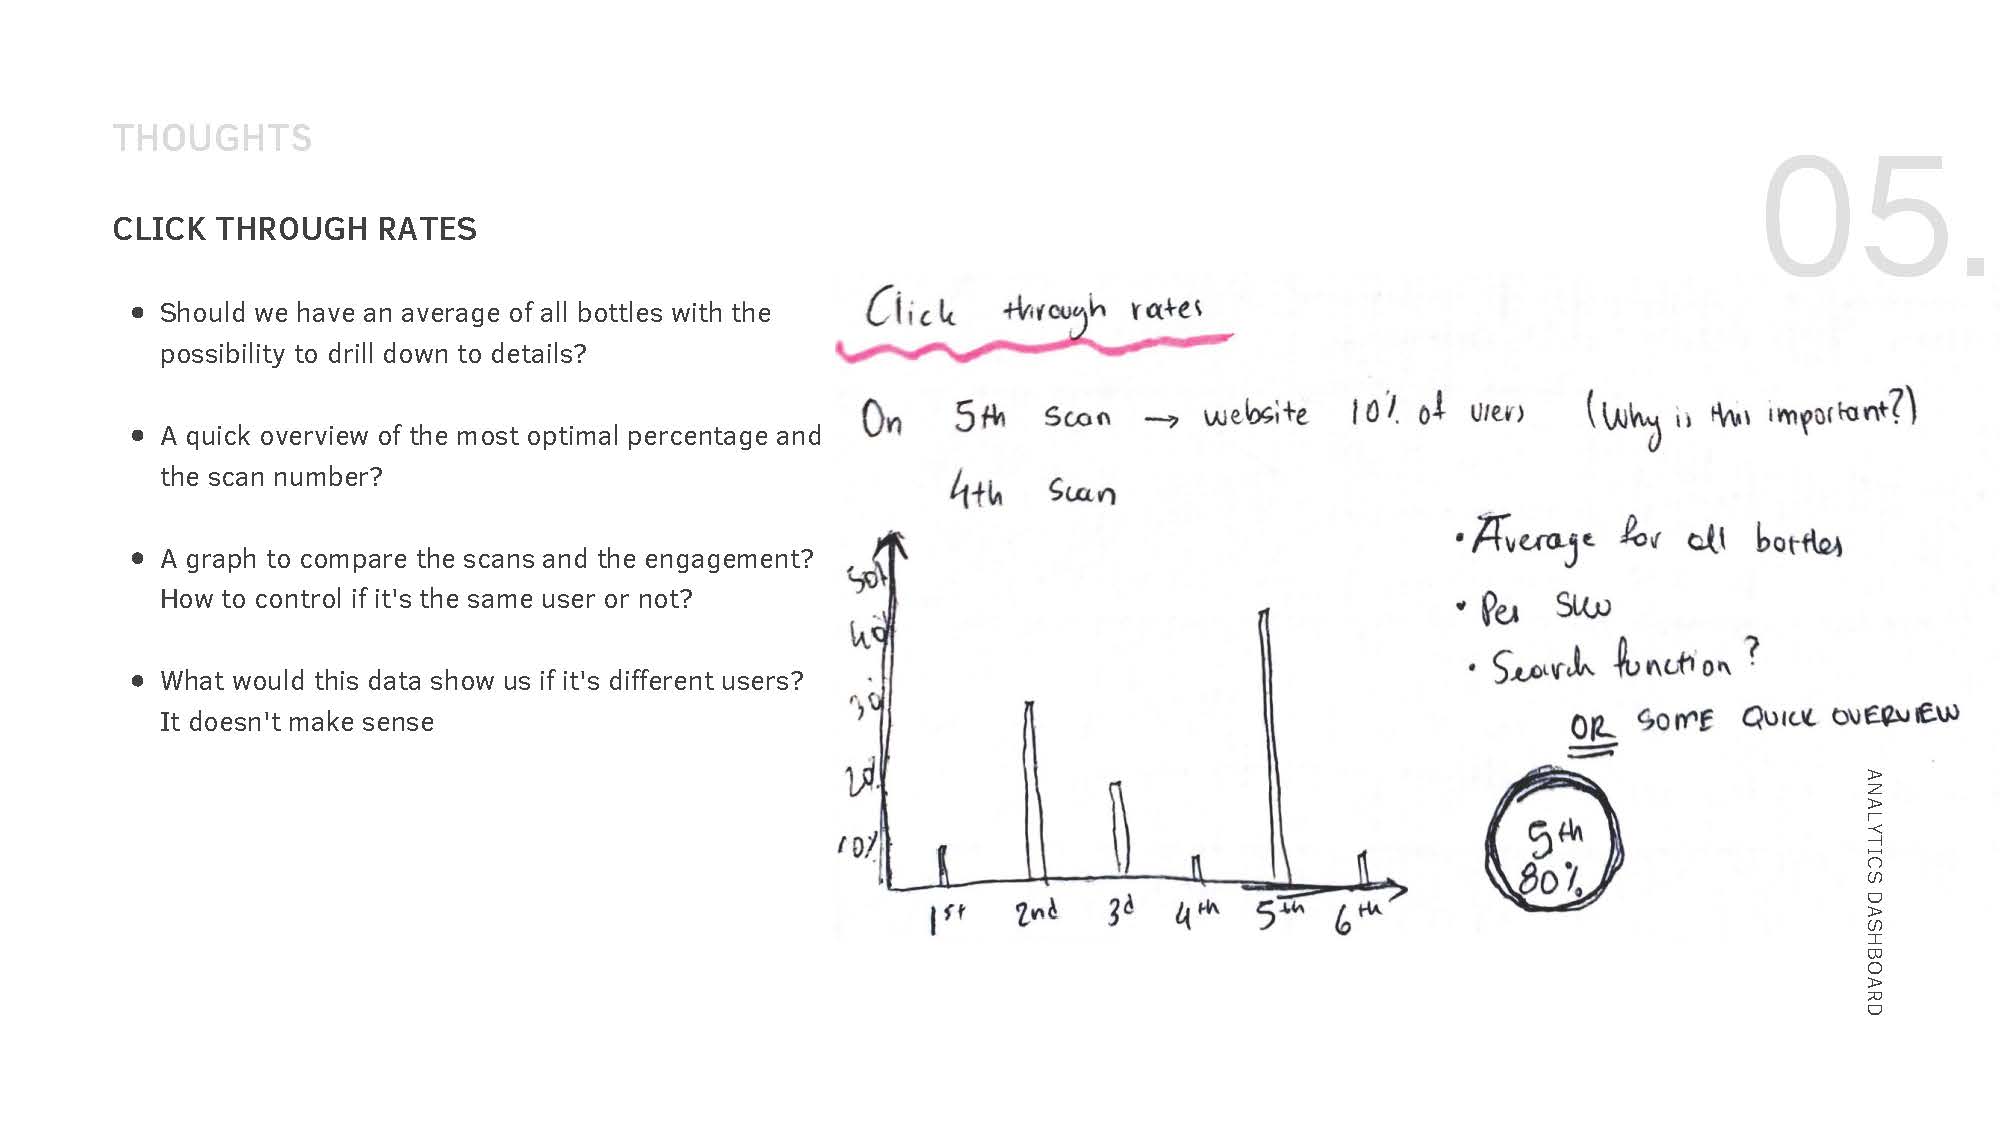 THOUGHTS
05.
CLICK THROUGH RATES
• Should we have an average of all bottles with the
possibility to drill down to details?
• A quick overview of the most optimal percentage and
the scan number?
• A graph to compare the scans and the engagement?
How to control if it's the same user or not?
• What would this data show us if it's different users?
It doesn't make sense
Click through rates
On 5th scan → website 10% of users (Why is this important?)
4th scan
50%
40
30
20
10%
1st 2nd 3d 4th 5th 6th
• Average for all bottles
• Per SKU
• Search function?
OR SOME QUICK OVERVIEW
5th
80%
ANALYTICS DASHBOARD